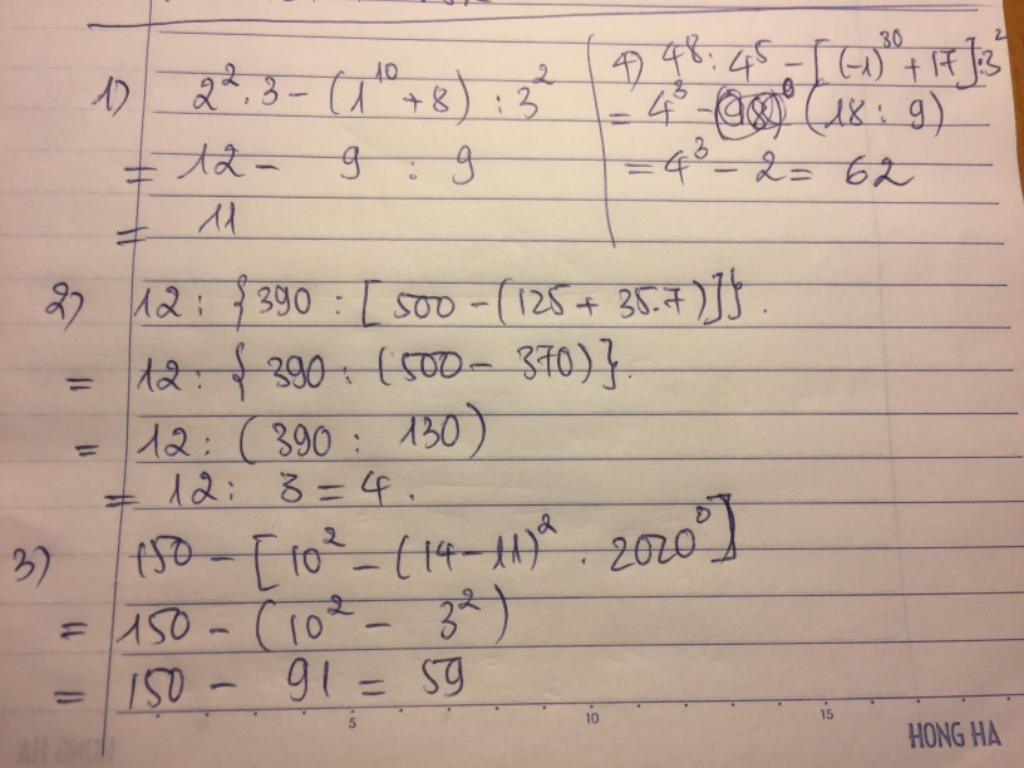 1) 2² . 3 - (1¹⁰ + 8) : 3²
= 12 - 9 : 9
= 11
4) 4⁸ : 4⁵ - [(-1)³⁰ + 17] : 3²
= 4³ - (18 : 9)
= 4³ - 2 = 62
2) 12 : {390 : [500 - (125 + 35.7)]}.
= 12 : {390 : (500 - 370)}.
= 12 : (390 : 130)
= 12 : 3 = 4.
3) 150 - [10² - (14 - 11)² . 2020⁰]
= 150 - (10² - 3²)
= 150 - 91 = 59
5 10 15
HONG HA